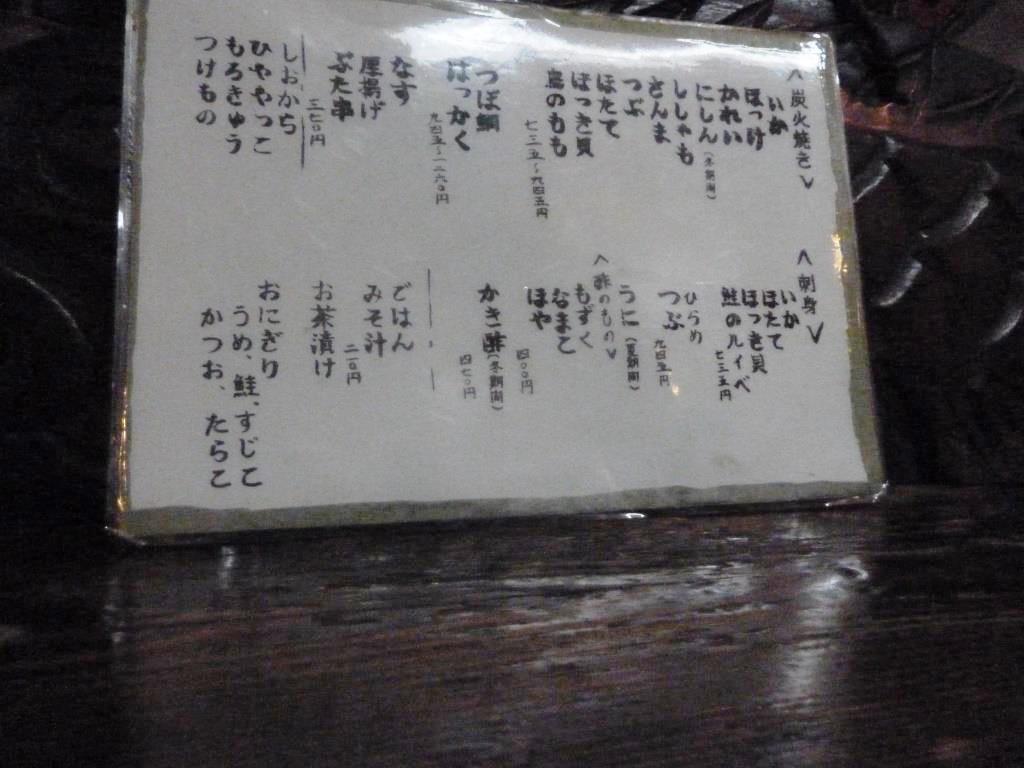 <炭火焼き>
いか
ほっけ
かれい
にしん(冬期間)
ししゃも
さんま
つぶ
ほたて
ほっき貝
鳥のもも
七三五〜九四五円
つぼ鯛
はっかく
九四五〜一二六〇円
なす
厚揚げ
ぶた串
三七〇円
しおから
ひややっこ
もろきゅう
つけもの
<刺身>
いか
ほたて
ほっき貝
鮭のルイベ
七三五円
ひらめ
つぶ
九四五円
うに(夏期間)
<酢のもの>
もずく
なまこ
ほや
四〇〇円
かき酢(冬期間)
四七〇円
ごはん
みそ汁
二一〇円
お茶漬け
おにぎり
うめ、鮭、すじこ
かつお、たらこ